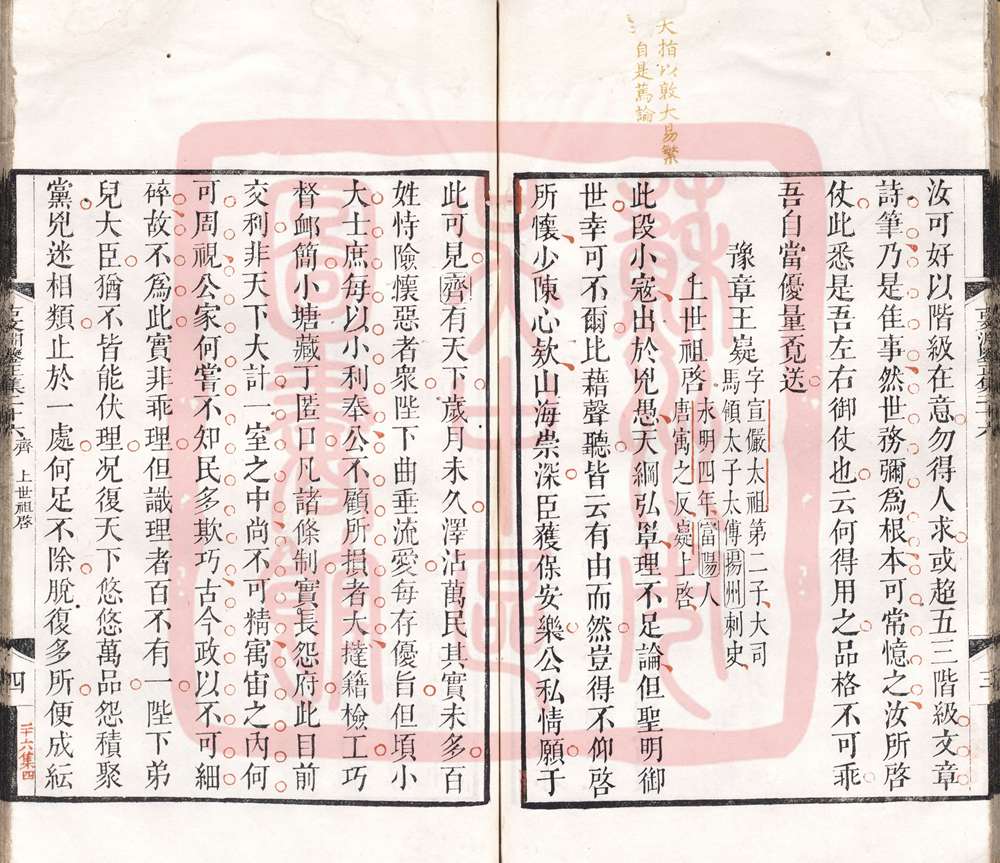 大指以敦大易繁
自是篤論
汝可好以階級在意勿得人求或超五三階級文章
詩筆乃是佳事然世務彌為根本可常憶之汝所啓
仗此悉是吾左右御仗也云何得用之品格不可乖
吾自當優量覓送
豫章王嶷字宣儼太祖第二子大司
馬領太子太傅揚州刺史
上世祖啓永明四年富陽人
唐㝢之反嶷上啓
此段小寇出於兇愚天綱弘罩理不足論但聖明御
世幸可不爾比藉聲聽皆云有由而然豈得不仰啓
所懷少陳心欵山海崇深臣獲保安樂公私情願于
此可見齊有天下歲月未久澤沾萬民其實未多百
姓恃險懷惡者衆陛下曲垂流愛每存優旨但頃小
大士庶每以小利奉公不顧所損者大撻籍檢工巧
督卹簡小塘藏丁匿口凡諸條制實長怨府此目前
交利非天下大計一室之中尚不可精寓宙之內何
可周視公家何嘗不知民多欺巧古今政以不可細
碎故不為此實非乖理但識理者百不有一陛下弟
兒大臣猶不皆能伏理况復天下悠悠萬品怨積聚
黨兇迷相類止於一處何足不除脫復多所便成紜
齊 上世祖啓
四
二十六集四